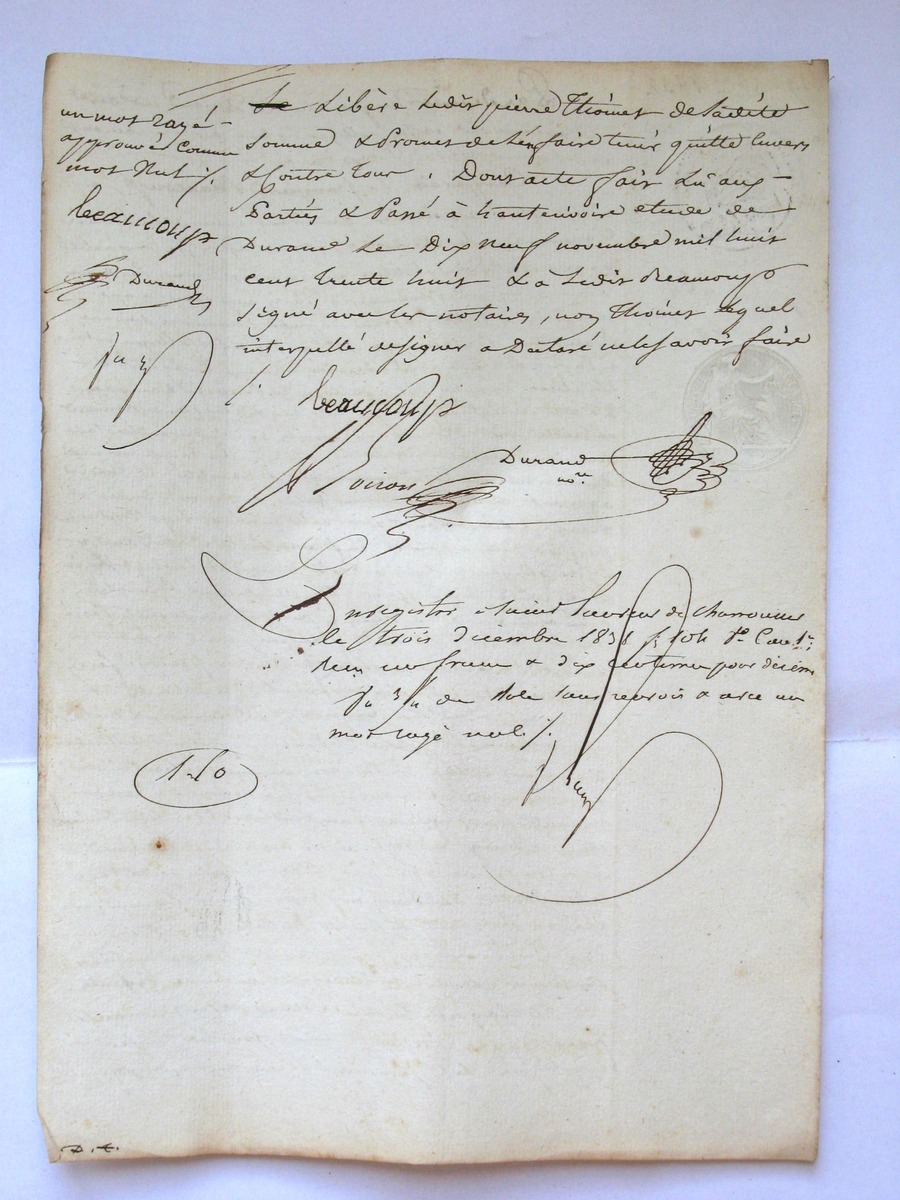 un mot rayé
approuvé comme
mot nul ./.
beaucoup
Durand
le libère ledit pierre Thomet de ladite
somme & promet de l'en faire tenir quitte envers
& contre tous . Dont acte fait lu aux
Parties & Passé à hauterivoire etude de
Durand Le Dix neuf novembre mil huit
cent trente huit & à Ledit Beaucoup
signé avec les notaires, non Thomet lequel
interpellé de signer a Declaré ne le savoir faire
./.
beaucoup
Durand
no.re
Enregistré à Saint Laurent de Chamousset
le trois décembre 1838
un franc & dix centimes pour décime
de Sole sans renvois & avec un
mot rayé nul ./.
1-10
D. t.